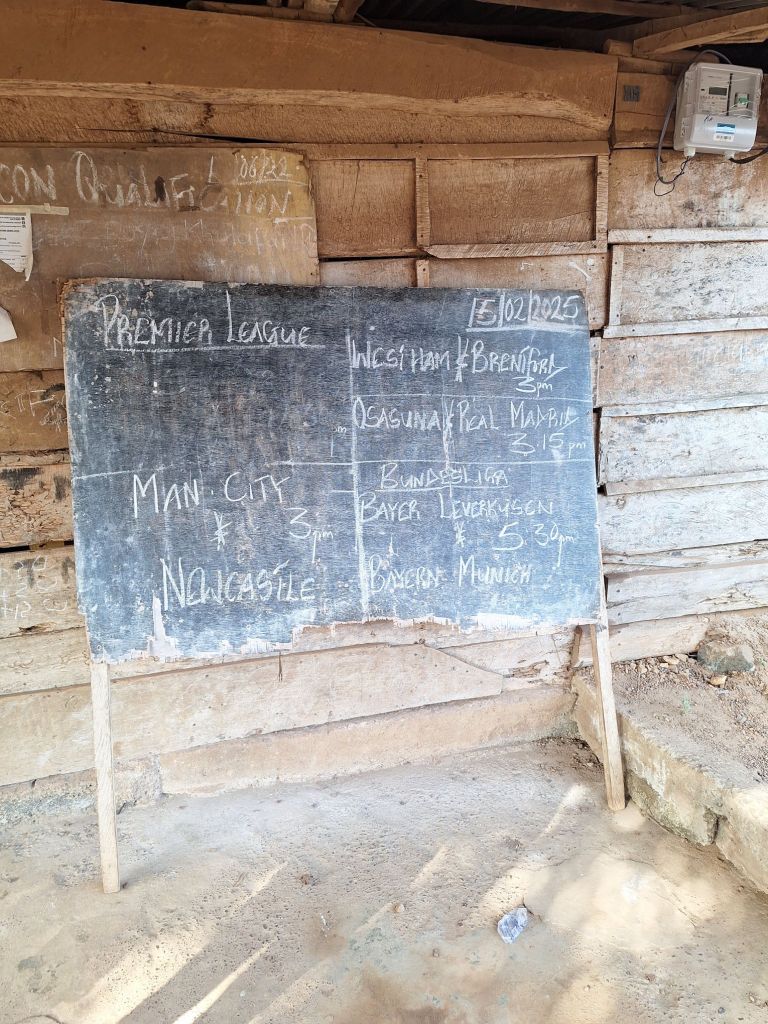 CON QUALIFICATION
PREMIER LEAGUE
15/02/2025
WESTHAM V BRENTFORD
3pm
OSASUNA V REAL MADRID
3.15pm
MAN. CITY
V 3pm
NEWCASTLE
BUNDESLIGA
BAYER LEVERKUSEN
V 5.30pm
BAYERN MUNICH